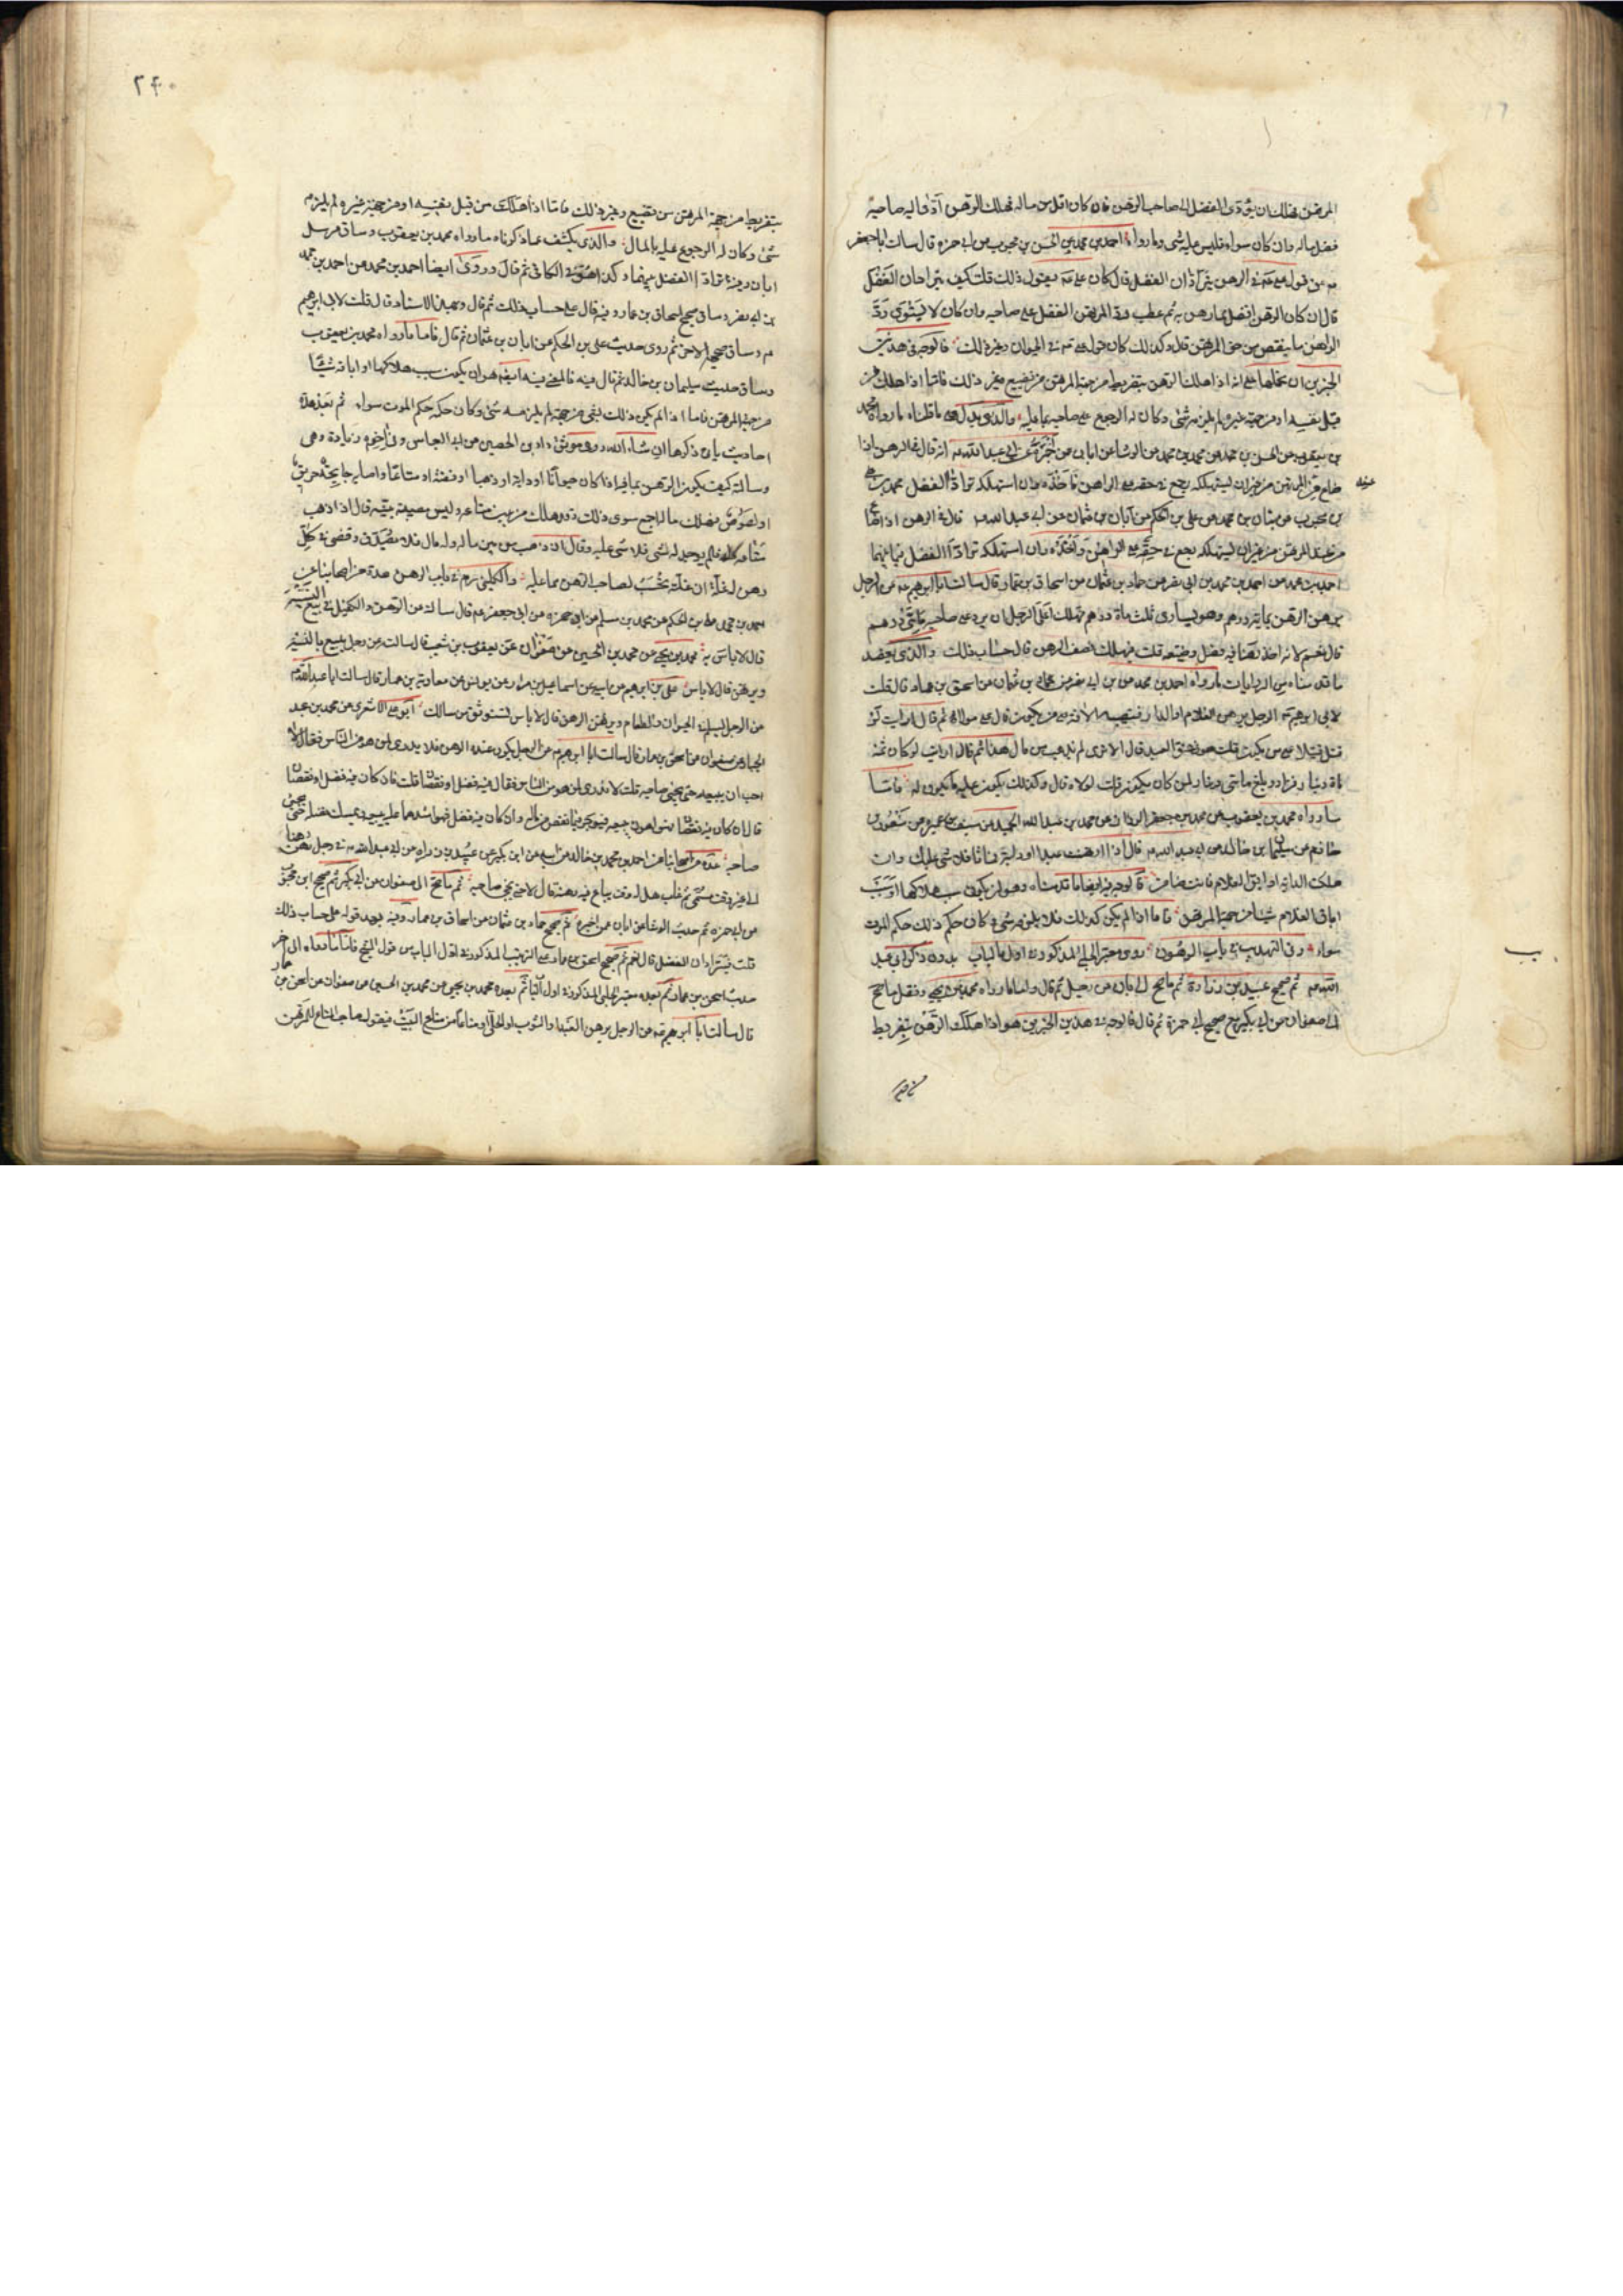 المرتهن فهلك ان يؤدى الفضل الى صاحب الرهن فان كان اقل من ماله فهلك الرهن ادّى اليه صاحبه
فضل ماله وان كان سواء فليس عليه شى وما رواه احمد بن محمد عن الحسن بن محبوب عن ابى حمزة قال سالت اباجعفر
عن قول على ع فى الرهن يترادّان الفضل قال كان على ع يقول ذلك قلت كيف يترادان الفضل
قال ان كان الرهن افضل مما رهن به ثم عطب ردّ المرتهن الفضل على صاحبه وان كان لا يسوى ردّ
الراهن ما ينقص من حق المرتهن قال وكذلك كان قول على ع فى الحيوان وغير ذلك فالوجه فى هذين
الخبرين ان نحملها على انه اذا هلك الرهن بتفريط من جهة المرتهن من تضييع وغير ذلك فاما اذا هلك من
قبل نفسه او من جهة غيره لم يلزمه شى وكان له الرجوع على صاحبه بما عليه والذى يدل على ما قلناه ما رواه محمد
بن يعقوب عن الحسين بن محمد عن معلى بن محمد عن الوشا عن ابان عمن اخبره عن ابى عبد الله ع انه قال فى الرهن اذا
ضاع من عند المرتهن من غير ان يستهلكه رجع فى حقه على الراهن فاخذه وان استهلكه ترادّا الفضل محمد بن على
عنه
بن محبوب عن بنان بن محمد عن على بن الحكم عن ابان بن عثمان عن ابى عبد الله ع قال فى الرهن اذا ضاع
من عند المرتهن من غير ان يستهلكه رجع فى حقه على الراهن واخذه وان استهلكه ترادّا الفضل فيما بينهما
احمد بن محمد عن احمد بن محمد بن ابى نصر عن حماد بن عثمان عن اسحاق بن عمار قال سالت ابا ابرهيم ع عن الرجل
يرهن الرهن بماية درهم وهو يساوى ثلث ماة درهم فهلك اعلى الرجل ان يرد على صاحبه مايتى درهم
قال نعم لانه اخذ رهنا فيه فضل وضيعه قلت فهلك نصف الرهن قال حساب ذلك والذى يعضد
ما قدمناه من الروايات ما رواه احمد بن محمد عن بن ابى نصر عن حماد بن عثمان عن اسحق بن عمار قال قلت
لابى ابرهيم ع الرجل يرهن الغلام او الدار فتصيبه الافة على من يكون قال على مولاه ثم قال ارايت لو
قتل قتيلا على من يكون قلت هو فى عنق العبد قال الا ترى لم يذهب من مال هذا ثم قال ارايت لو كان ثمنه
ماة دينار فزاد وبلغ مايتى دينار لمن كان يكون قلت لمولاه قال وكذلك يكون عليه ما يكون له فاما
ما رواه محمد بن يعقوب عن محمد بن جعفر الرزاز عن محمد بن عبد الحميد عن سيف بن عميرة عن منصور بن
حازم عن سليمان بن خالد عن ابى عبد الله ع قال اذا ارتهنت عبدا او دابة فماتا فلا شى عليك وان
هلكت الدابة او ابق الغلام فانت ضامن فالوجه فيه ايضا ما قدمناه وهو ان يكون سبب هلاكها او سبب
اباق الغلام شيئا من جهة المرتهن فاما اذا لم يكن كذلك فلا يلزمه شى وكان حكم ذلك حكم الموت
سواء وفى التهذيب فى باب الرهون روى معتبر الحلبى المذكور فى اول الباب بدون ذكر ابى عبد
الله ع ثم صحيح عبيد بن زرارة ثم ما صح الى ابان عن رجل ثم قال واما ما رواه محمد بن يحيى ونقل ما صح
الى صفوان عن ابن بكير مع صحيح ابى حمزة ثم قال فالوجه فى هذين الخبرين هو اذا هلك الرهن بتفريط
٢٤٠
بتفريط من جهة المرتهن من تضييع وغير ذلك فاما اذا هلك من قبل نفسه او من جهة غيره لم يلزمه
شى وكان له الرجوع عليه بالمال والذى يكشف عما ذكرناه ما رواه محمد بن يعقوب وساق مرسل
ابان وفيه ترادّا الفضل بينهما وكذا هو فى الكافى ثم قال وروى ايضا احمد بن محمد عن احمد بن محمد
بن ابى نصر وساق صحيح اسحاق بن عمار وفيه قال على حساب ذلك ثم قال وبهذا الاسناد قال قلت لابى ابرهيم
ع وساق صحيح الاخر ثم روى حديث على بن الحكم عن ابان بن عثمان ثم قال فاما ما رواه محمد بن يعقوب
وساق حديث سليمان بن خالد ثم قال فيه فالمعنى فيه ايضا هو ان يكون سبب هلاكها او اباقه شيئا
من جهة المرتهن فاما اذا لم يكن ذلك بشى من جهته لم يلزمه شى وكان حكمه حكم الموت سواء ثم بعد هذه
احاديث ياتى ذكرها ان شاء الله وروى موثق داود بن الحصين عن ابى العباس وفى اخره زيادة وهى
وسالته كيف يكون الرهن بما فيه اذا كان حيوانا او دابة او ذهبا او فضة او متاعا واصابه جايحة حريق
او لصوص فهلك ماله اجمع سوى ذلك وقد هلك من بين متاعه وليس مصيبته بينة قال اذا ذهب
متاعه كله فلم يوجد له شى فلا شى عليه وقال ان ذهب من بين ماله وله مال فلا يصدق وقضى فى كل
رهن له غلة ان غلته تحسب لصاحب الرهن مما عليه والكلينى ره فى باب الرهن عدة من اصحابنا عن
احمد بن محمد عن على بن الحكم عن محمد بن مسلم عن ابى حمزه عن ابى جعفر ع قال سالته عن الرهن والكفيل فى بيع النسية
قال لا باس به محمد بن يحيى عن محمد بن الحسين عن صفوان عن يعقوب بن شعيب قال سالته عن رجل يبيع بالنسية
ويرتهن قال لا باس على بن ابرهيم عن ابيه عن اسماعيل بن مرار عن يونس عن معاوية بن عمار قال سالت ابا عبد الله ع
عن الرجل يسلم فى الحيوان والطعام ويرتهن الرهن قال لا باس تستوثق من مالك ابو على الاشعرى عن محمد بن عبد
الجبار عن صفوان عن اسحق بن عمار قال سالت ابا ابرهيم ع عن الرجل يكون عنده الرهن فلا يدرى لمن هو من الناس فقال لا
احب ان يبيعه حتى يجىء صاحبه قلت لا يدرى لمن هو من الناس فقال فيه فضل او نقصان قلت فان كان فيه فضل او نقصان
قال ان كان فيه نقصان فهو اهون يبيعه فيوجر فيما نقص من ماله وان كان فيه فضل فهو اشدهما عليه يبيعه ويمسك فضله حتى يجىء
صاحبه عدة من اصحابنا عن احمد بن محمد بن خالد عن ابيه عن ابن بكير عن عبيد بن زراره عن ابى عبد الله ع فى رجل رهن رهنا
الى غير وقت مسمى ثم غاب هل له وقت يباع فيه رهنه قال لا حتى يجىء صاحبه ثم ما صح الى صفوان عن ابن بكير ثم صحيح ابن محبوب
عن ابى حمزه ثم حديث الوشا عن ابان عمن اخبره ثم صحيح حماد بن عثمان عن اسحاق بن عمار وفيه بعد قوله على حساب ذلك
قلت فيترادان الفضل قال نعم ثم صحيح اسحق بن عمار على الترتيب المذكور فى اول الباب من قول الشيخ فاما ما رواه الى اخر
حديث اسحق بن عمار ثم بعده معتبر الحلبى المذكور فى اول الباب ثم بعده محمد بن يحيى عن محمد بن الحسين عن صفوان عن اسحق بن عمار
قال سالت ابا ابرهيم ع عن الرجل يرهن العبد او الثوب او الحلى او متاعا من متاع البيت فيقول صاحب المتاع للمرتهن